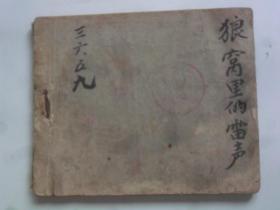 狼窝里的雷声
三六五九